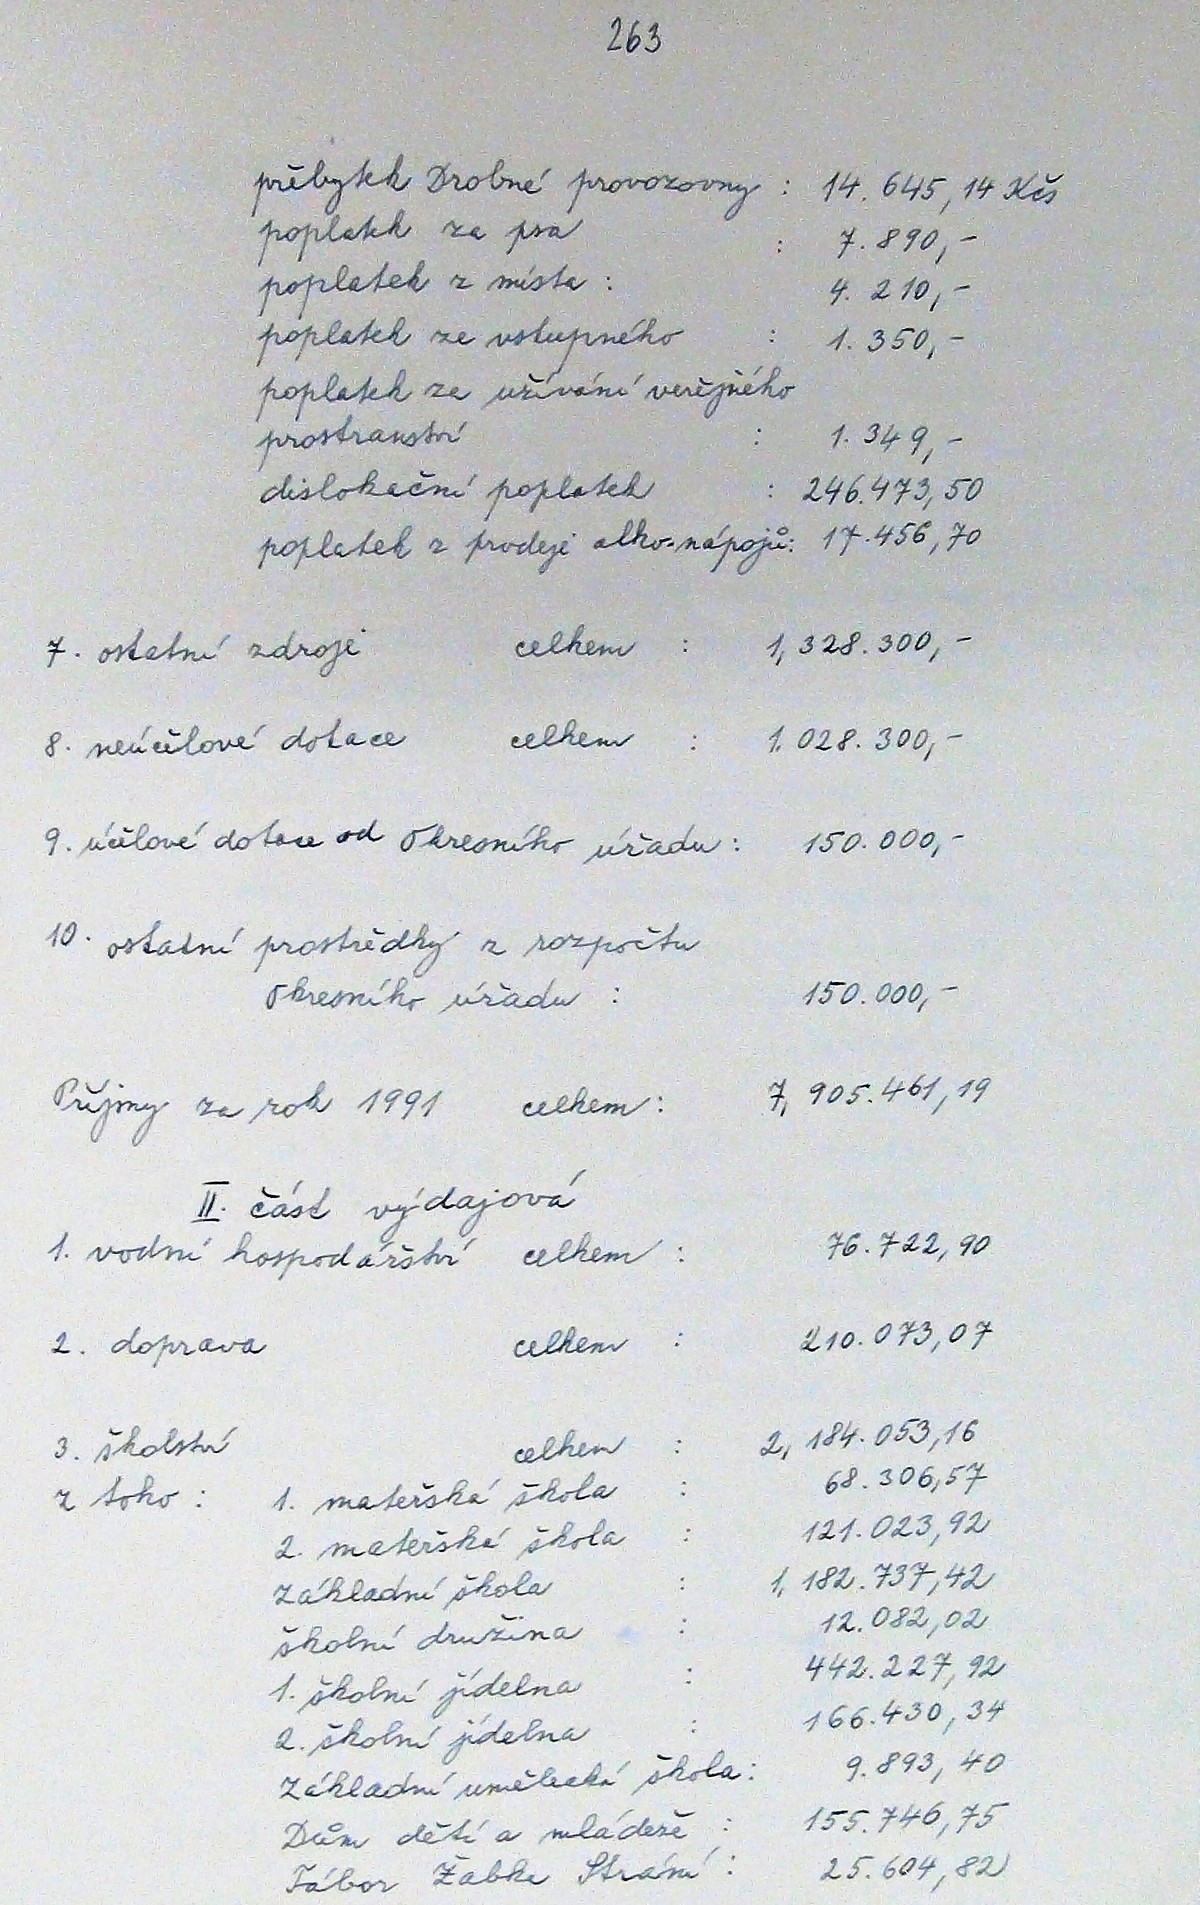 263
přebytek Drobné provozovny : 14.645,14 Kčs
poplatek za psa : 7.890,-
poplatek z místa : 4.210,-
poplatek ze vstupného : 1.350,-
poplatek za užívání veřejného
prostranství : 1.349,-
dislokační poplatek : 246.473,50
poplatek z prodeje alko.nápojů: 17.456,70
7. ostatní zdroje celkem : 1,328.300,-
8. neúčelové dotace celkem : 1.028.300,-
9. účelové dotace od Okresního úřadu : 150.000,-
10. ostatní prostředky z rozpočtu
Okresního úřadu : 150.000,-
Příjmy za rok 1991 celkem : 7,905.461,19
II. část výdajová
1. vodní hospodářství celkem : 76.722,90
2. doprava celkem : 210.073,07
3. školství celkem : 2,184.053,16
z toho : 1. mateřská škola : 68.306,57
2. mateřská škola : 121.023,92
základní škola : 1,182.737,42
školní družina : 12.082,02
1. školní jídelna : 442.227,92
2. školní jídelna : 166.430,34
základní umělecká škola : 9.893,40
Dům dětí a mládeže : 155.746,75
Tábor Žabka Strání : 25.604,82